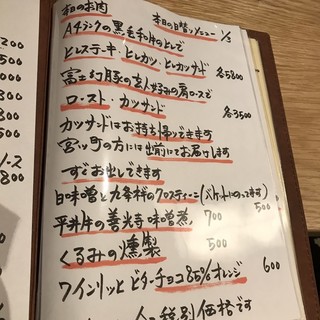 本日のお肉
本日の日替りメニュー 1/3
A4ランクの黒毛和牛のヒレで
ヒレステーキ・ヒレカツ・ヒレカツサンド 各5800
富士幻豚の玄人好みの肩ロースで
ロースト・カツサンド 各3500
カツサンドはお持ち帰りできます
宮ッ町の方には出前にてお届けします
すぐお出しできます
白味噌と九条柿のクロスティーニ(バケットにのってます) 500
平井牛の善光寺味噌煮 700
くるみの燻製 500
ワインリッヒ ビターチョコ85%オレンジ 600
税別価格です
200
1-2
800